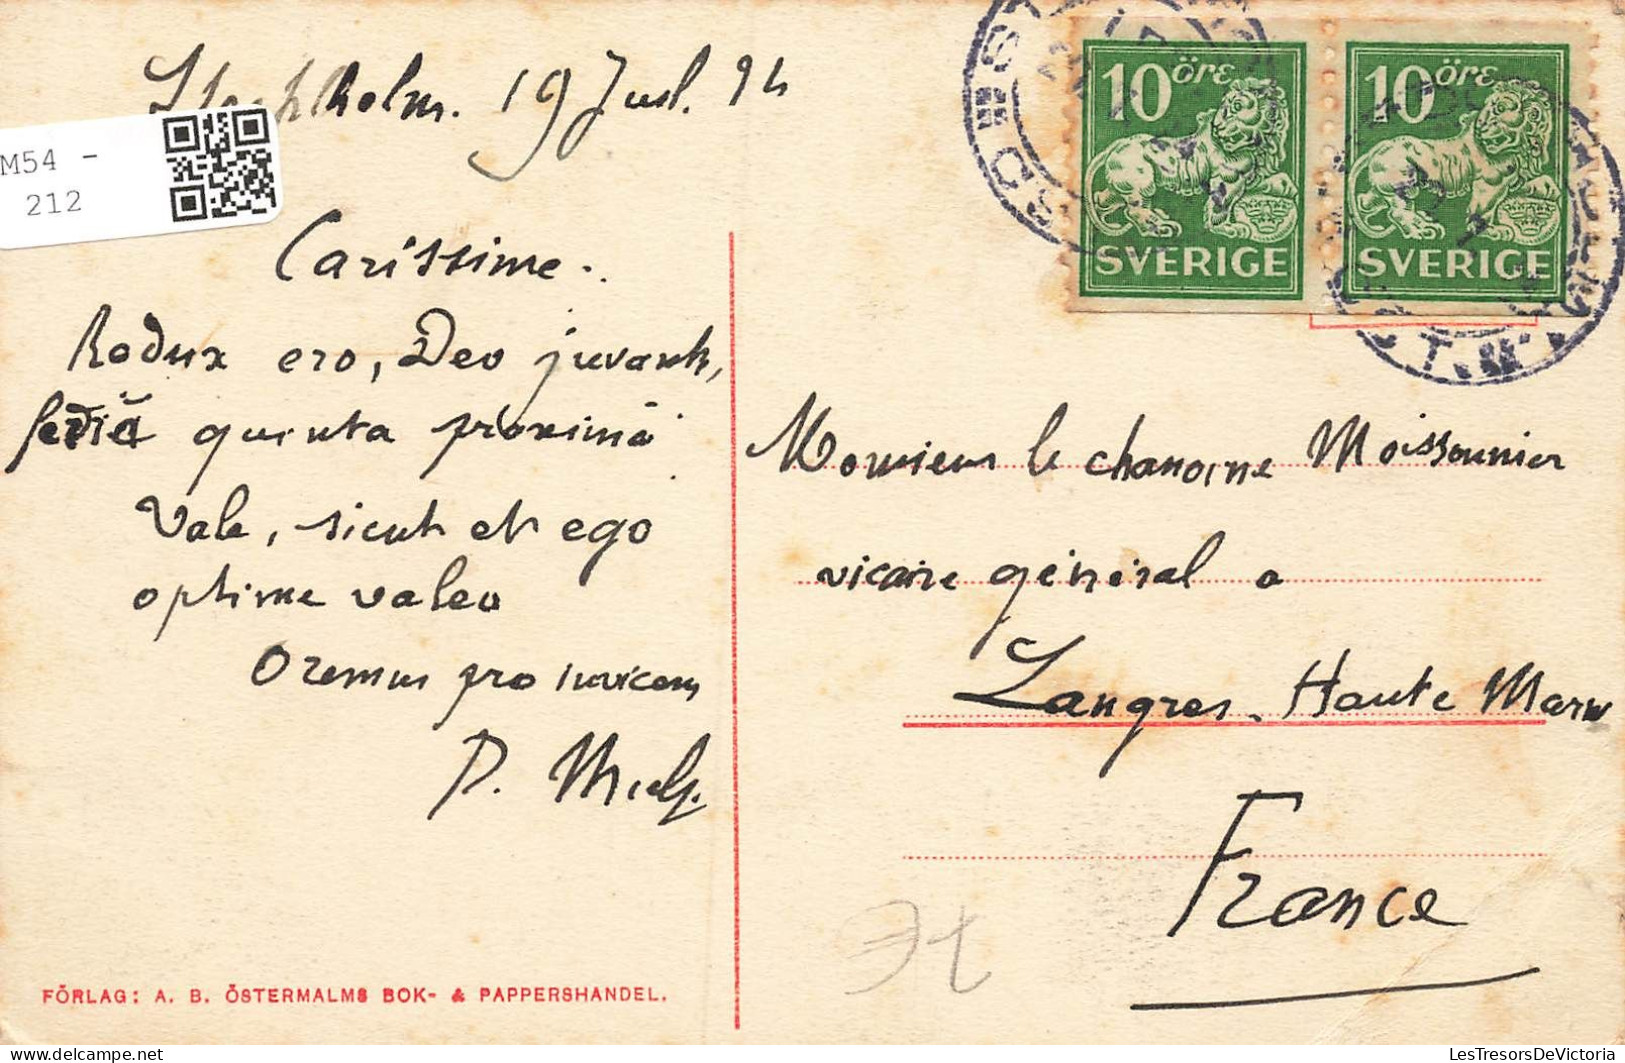 Stockholm. 19 Jul. 24
M54 -
212
Carissime.
Redux ero, Deo juvante,
feriā quinta proximā
Vale, sicut et ego
optime valeo
Oremus pro invicem
P.
10 öre
SVERIGE
10 öre
SVERIGE
Monsieur le chanoine Moissonnier
vicaire général a
Langres. Haute Marne
France
FÖRLAG: A. B. ÖSTERMALMS BOK- & PAPPERSHANDEL.
LesTresorsDeVictoria